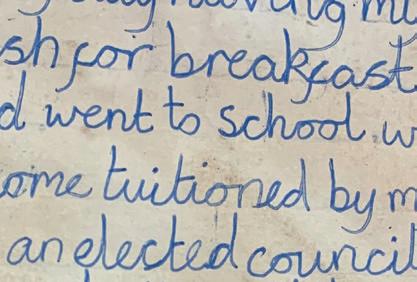 sh for breakfast
d went to school w
ome tuitioned by m
an elected council